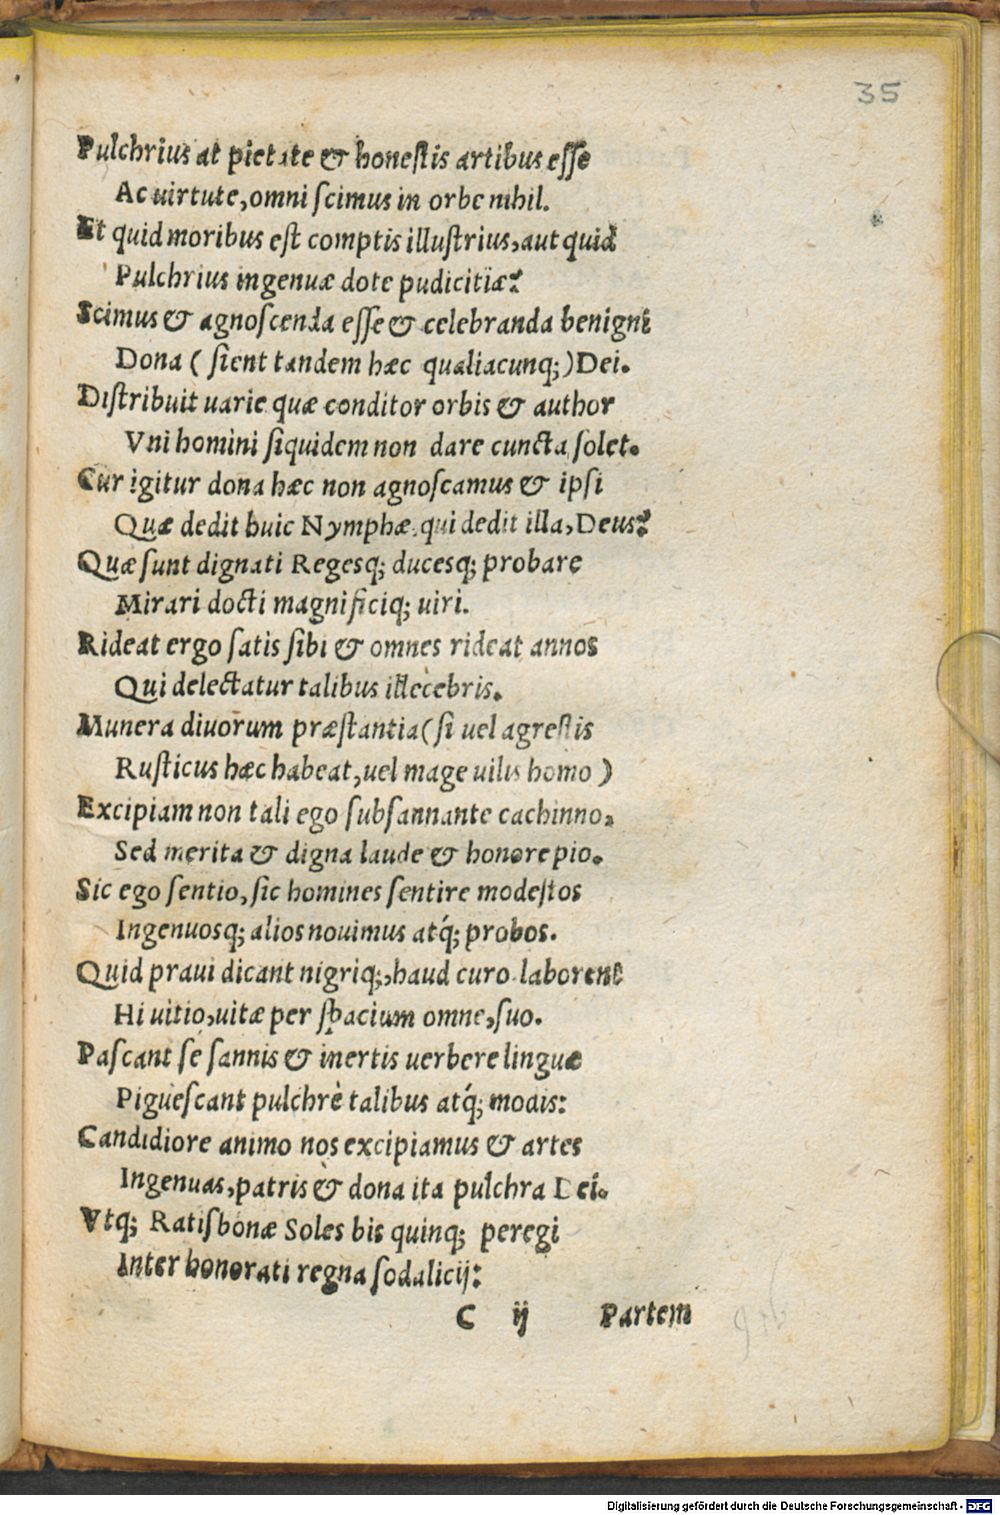 35
Pulchrius at pietate & honestis artibus esse
Ac uirtute, omni scimus in orbe nihil.
Et quid moribus est comptis illustrius, aut quid
Pulchrius ingenuæ dote pudicitiæ?
Scimus & agnoscenda esse & celebranda benigni
Dona ( sient tandem hæc qualiacunq;) Dei.
Distribuit uarie quæ conditor orbis & author
Vni homini siquidem non dare cuncta solet.
Cur igitur dona hæc non agnoscamus & ipsi
Quæ dedit huic Nymphæ, qui dedit illa, Deus?
Quæ sunt dignati Regesq; ducesq; probare
Mirari docti magnificiq; uiri.
Rideat ergo satis sibi & omnes rideat annos
Qui delectatur talibus illecebris.
Munera diuorum præstantia (si uel agrestis
Rusticus hæc habeat, uel mage uilis homo )
Excipiam non tali ego subsannante cachinno,
Sed merita & digna laude & honore pio.
Sic ego sentio, sic homines sentire modestos
Ingenuosq; alios nouimus atq́; probos.
Quid praui dicant nigriq;, haud curo laborent
Hi uitio, uitæ per spacium omne, suo.
Pascant se sannis & inertis uerbere linguæ
Piguescant pulchrè talibus atq́; modis:
Candidiore animo nos excipiamus & artes
Ingenuas, patris & dona ita pulchra Dei.
Vtq; Ratisbonæ Soles bis quinq; peregi
Inter honorati regna sodalicij:
C ij Partem
Digitalisierung gefördert durch die Deutsche Forschungsgemeinschaft - DFG